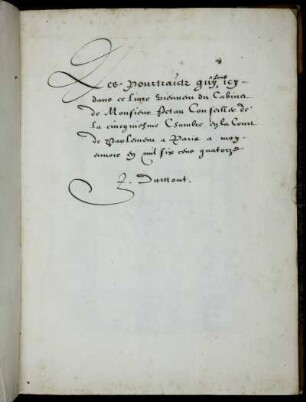 Les pourtraictz quy sont icy
dans ce Livre viennent du Cabinet
de Monsieur Petau Conseiller de
la cincquiesme Chambre en la Court
de Parlement a Paris a moy
en mil six cens quatorze
J. Dumont.